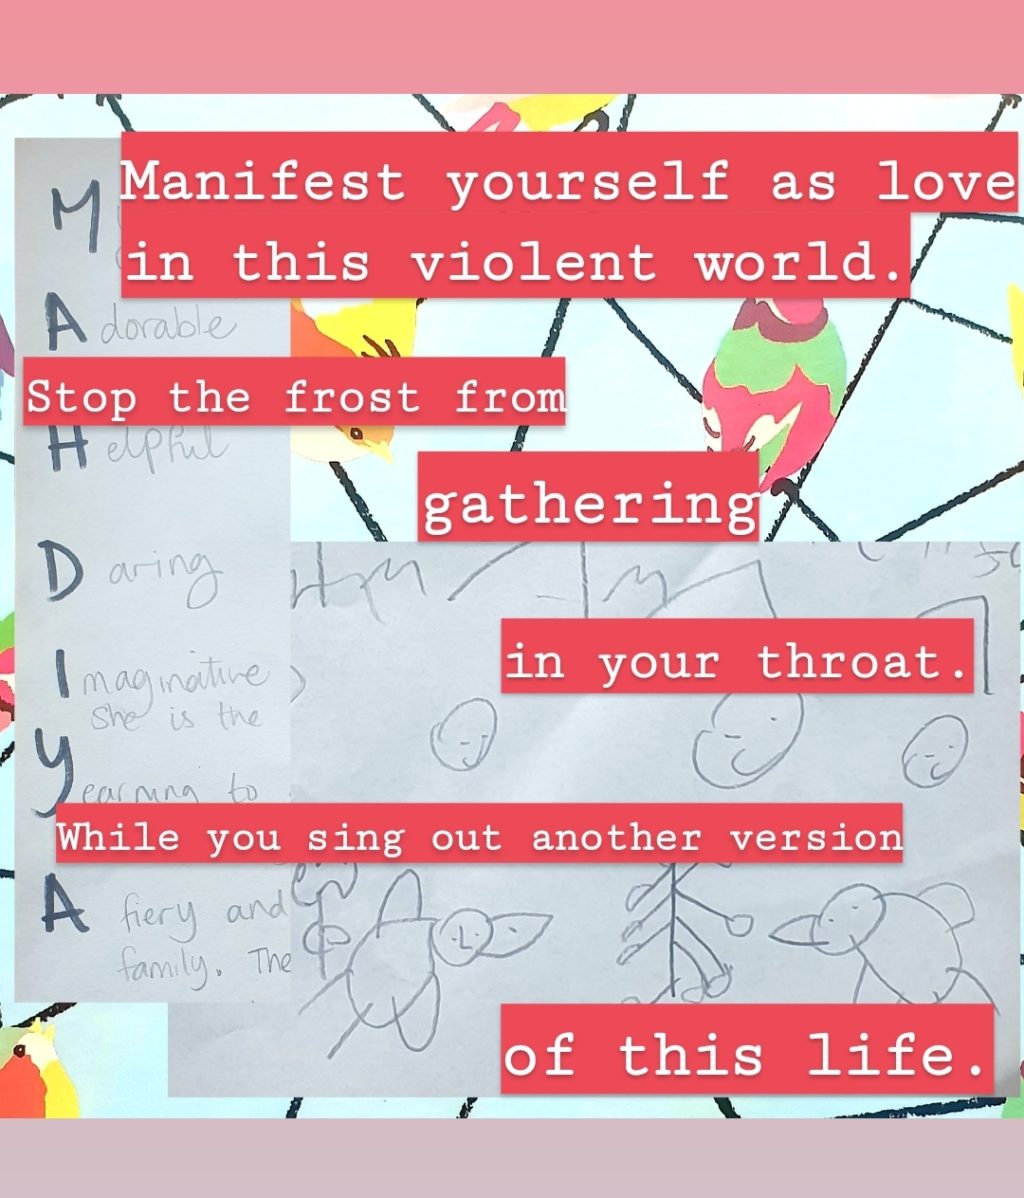 Manifest yourself as love
in this violent world.
M
Adorable
Stop the frost from
Helpful
gathering
Daring
in your throat.
Imaginative
she is the
Yearning to
While you sing out another version
A fiery and
family. The
of this life.